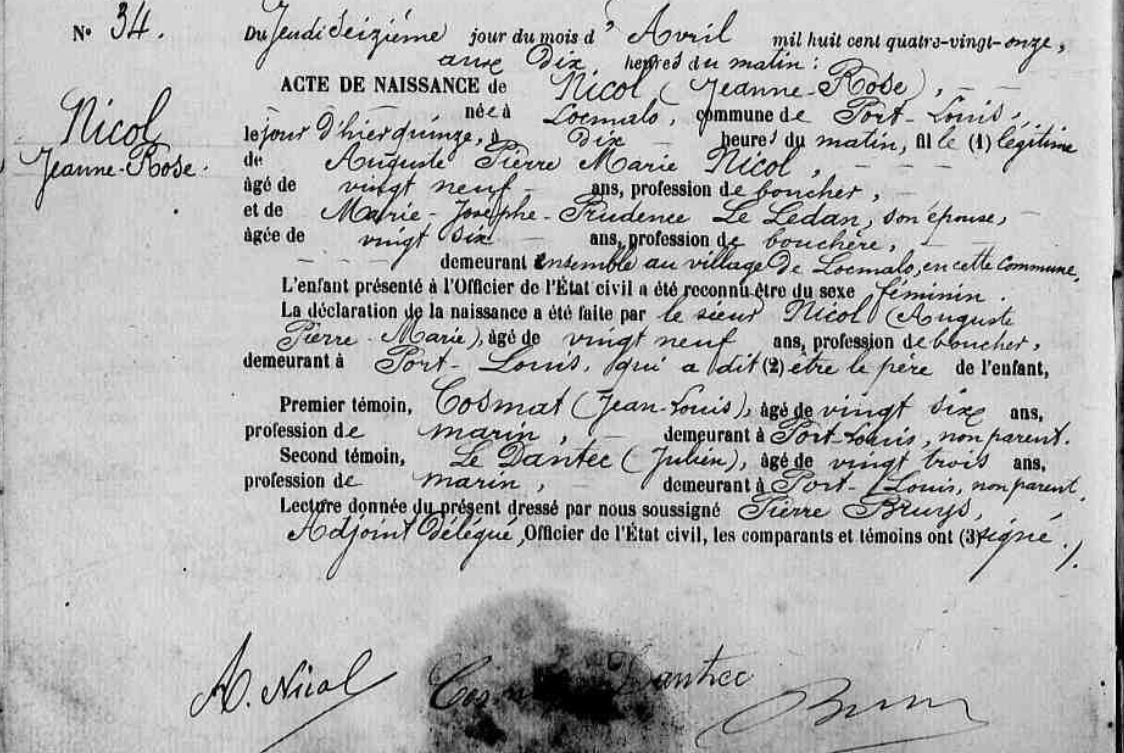 N° 34.
Du Jeudi Seizième jour du mois d' Avril mil huit cent quatre-vingt-onze,
aux Dix heures du matin :
ACTE DE NAISSANCE de Nicol (Jeanne-Rose),
Nicol
Jeanne-Rose.
née à Locmalo, commune de Port-Louis,
le jour d'hier quinze, à Dix heures du matin, fille (1) légitime
de Auguste Pierre Marie Nicol,
âgé de vingt neuf ans, profession de boucher,
et de Marie-Josèphe-Prudence Le Lédan, son épouse,
âgée de vingt six ans, profession de bouchère,
demeurant ensemble au village de Locmalo, en cette commune,
L'enfant présenté à l'Officier de l'État civil a été reconnu être du sexe féminin.
La déclaration de la naissance a été faite par le sieur Nicol (Auguste
Pierre-Marie), âgé de vingt neuf ans, profession de boucher,
demeurant à Port-Louis, qui a dit (2) être le père de l'enfant,
Premier témoin, Cosmat (Jean-Louis), âgé de vingt six ans,
profession de marin, demeurant à Port-Louis, non parent.
Second témoin, Le Dantec (Julien), âgé de vingt trois ans,
profession de marin, demeurant à Port-Louis, non parent.
Lecture donnée du présent dressé par nous soussigné Pierre Bruys,
Adjoint Délégué, Officier de l'État civil, les comparants et témoins ont (3) signé ./.
A. Nicol Dantec